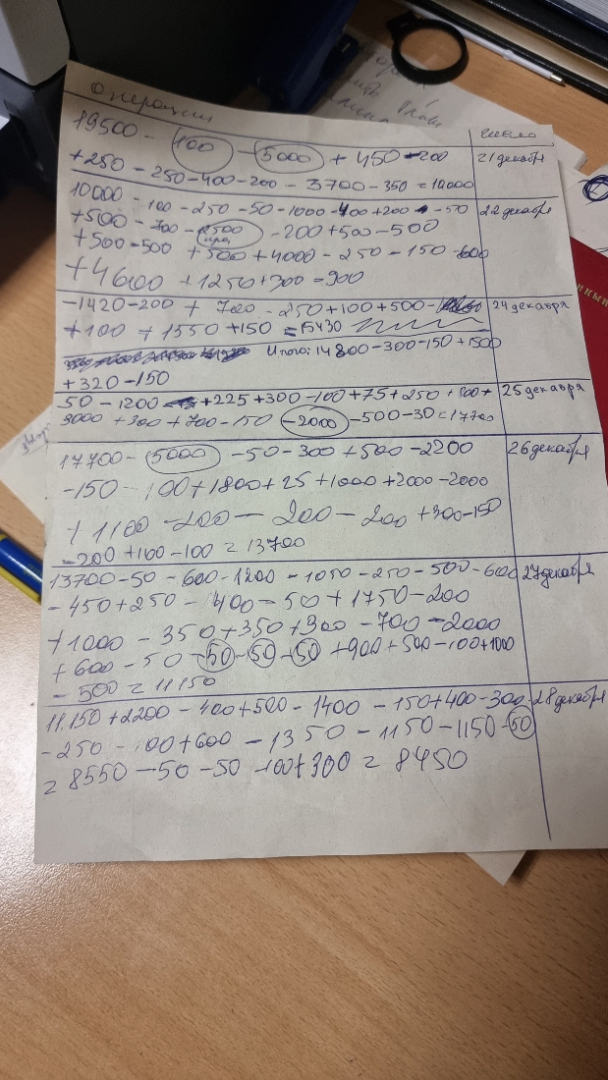 операции число
19500 - 100 - 5000 + 450 - 200 21 декабря
+250 - 250 - 400 - 200 - 3700 - 350 = 10000
10000 - 100 - 250 - 50 - 1000 - 400 + 200 - 50 22 декабря
+500 - 700 - 1500 - 200 + 500 - 500
+500 - 500 + 500 + 4000 - 250 - 150 - 600
+4600 + 1250 + 300 - 900
-1420 - 200 + 700 - 250 + 100 + 500 - 24 декабря
+100 + 1550 + 150 = 15430
Итого: 14800 - 300 - 150 + 1500
+320 - 150
50 - 1200 + 225 + 300 - 100 + 75 + 250 + 800 + 25 декабря
3000 + 300 + 700 - 150 - 2000 - 500 - 30 = 17700
17700 - 5000 - 50 - 300 + 500 - 2200 26 декабря
-150 - 100 + 1800 + 25 + 1000 + 2000 - 2000
+1100 - 200 - 200 - 200 + 300 - 150
-200 + 100 - 100 = 13700
13700 - 50 - 600 - 1200 - 1050 - 250 - 500 - 600 27 декабря
-450 + 250 - 400 - 50 + 1750 - 200
+1000 - 350 + 350 + 300 - 700 - 2000
+600 - 50 - 50 - 50 - 50 + 900 + 500 - 100 + 1000
-500 = 11150
11.150 + 2200 - 400 + 500 - 1400 - 150 + 400 - 300 - 28 декабря
-250 - 100 + 600 - 1350 - 1150 - 1150 - 50
= 8550 - 50 - 50 - 100 + 300 = 8450